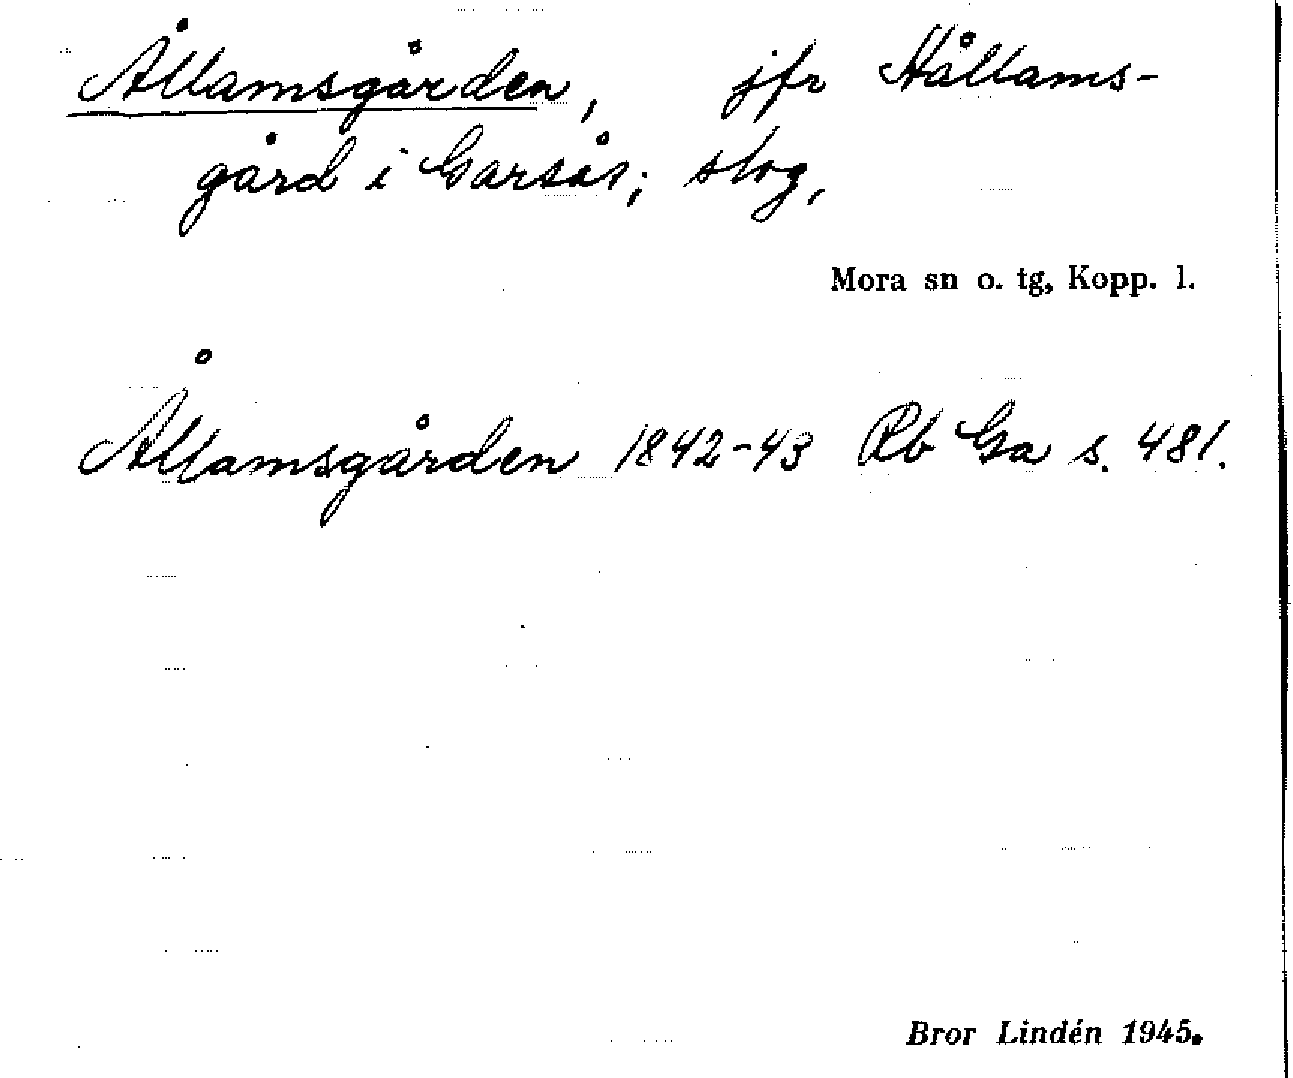 Ållamsgården, jfr Hållams-
gård i Garsås; slog,
Mora sn o. tg, Kopp. l.
Ållamsgården 1842-43 Rb Ga s. 481.
Bror Lindén 1945.